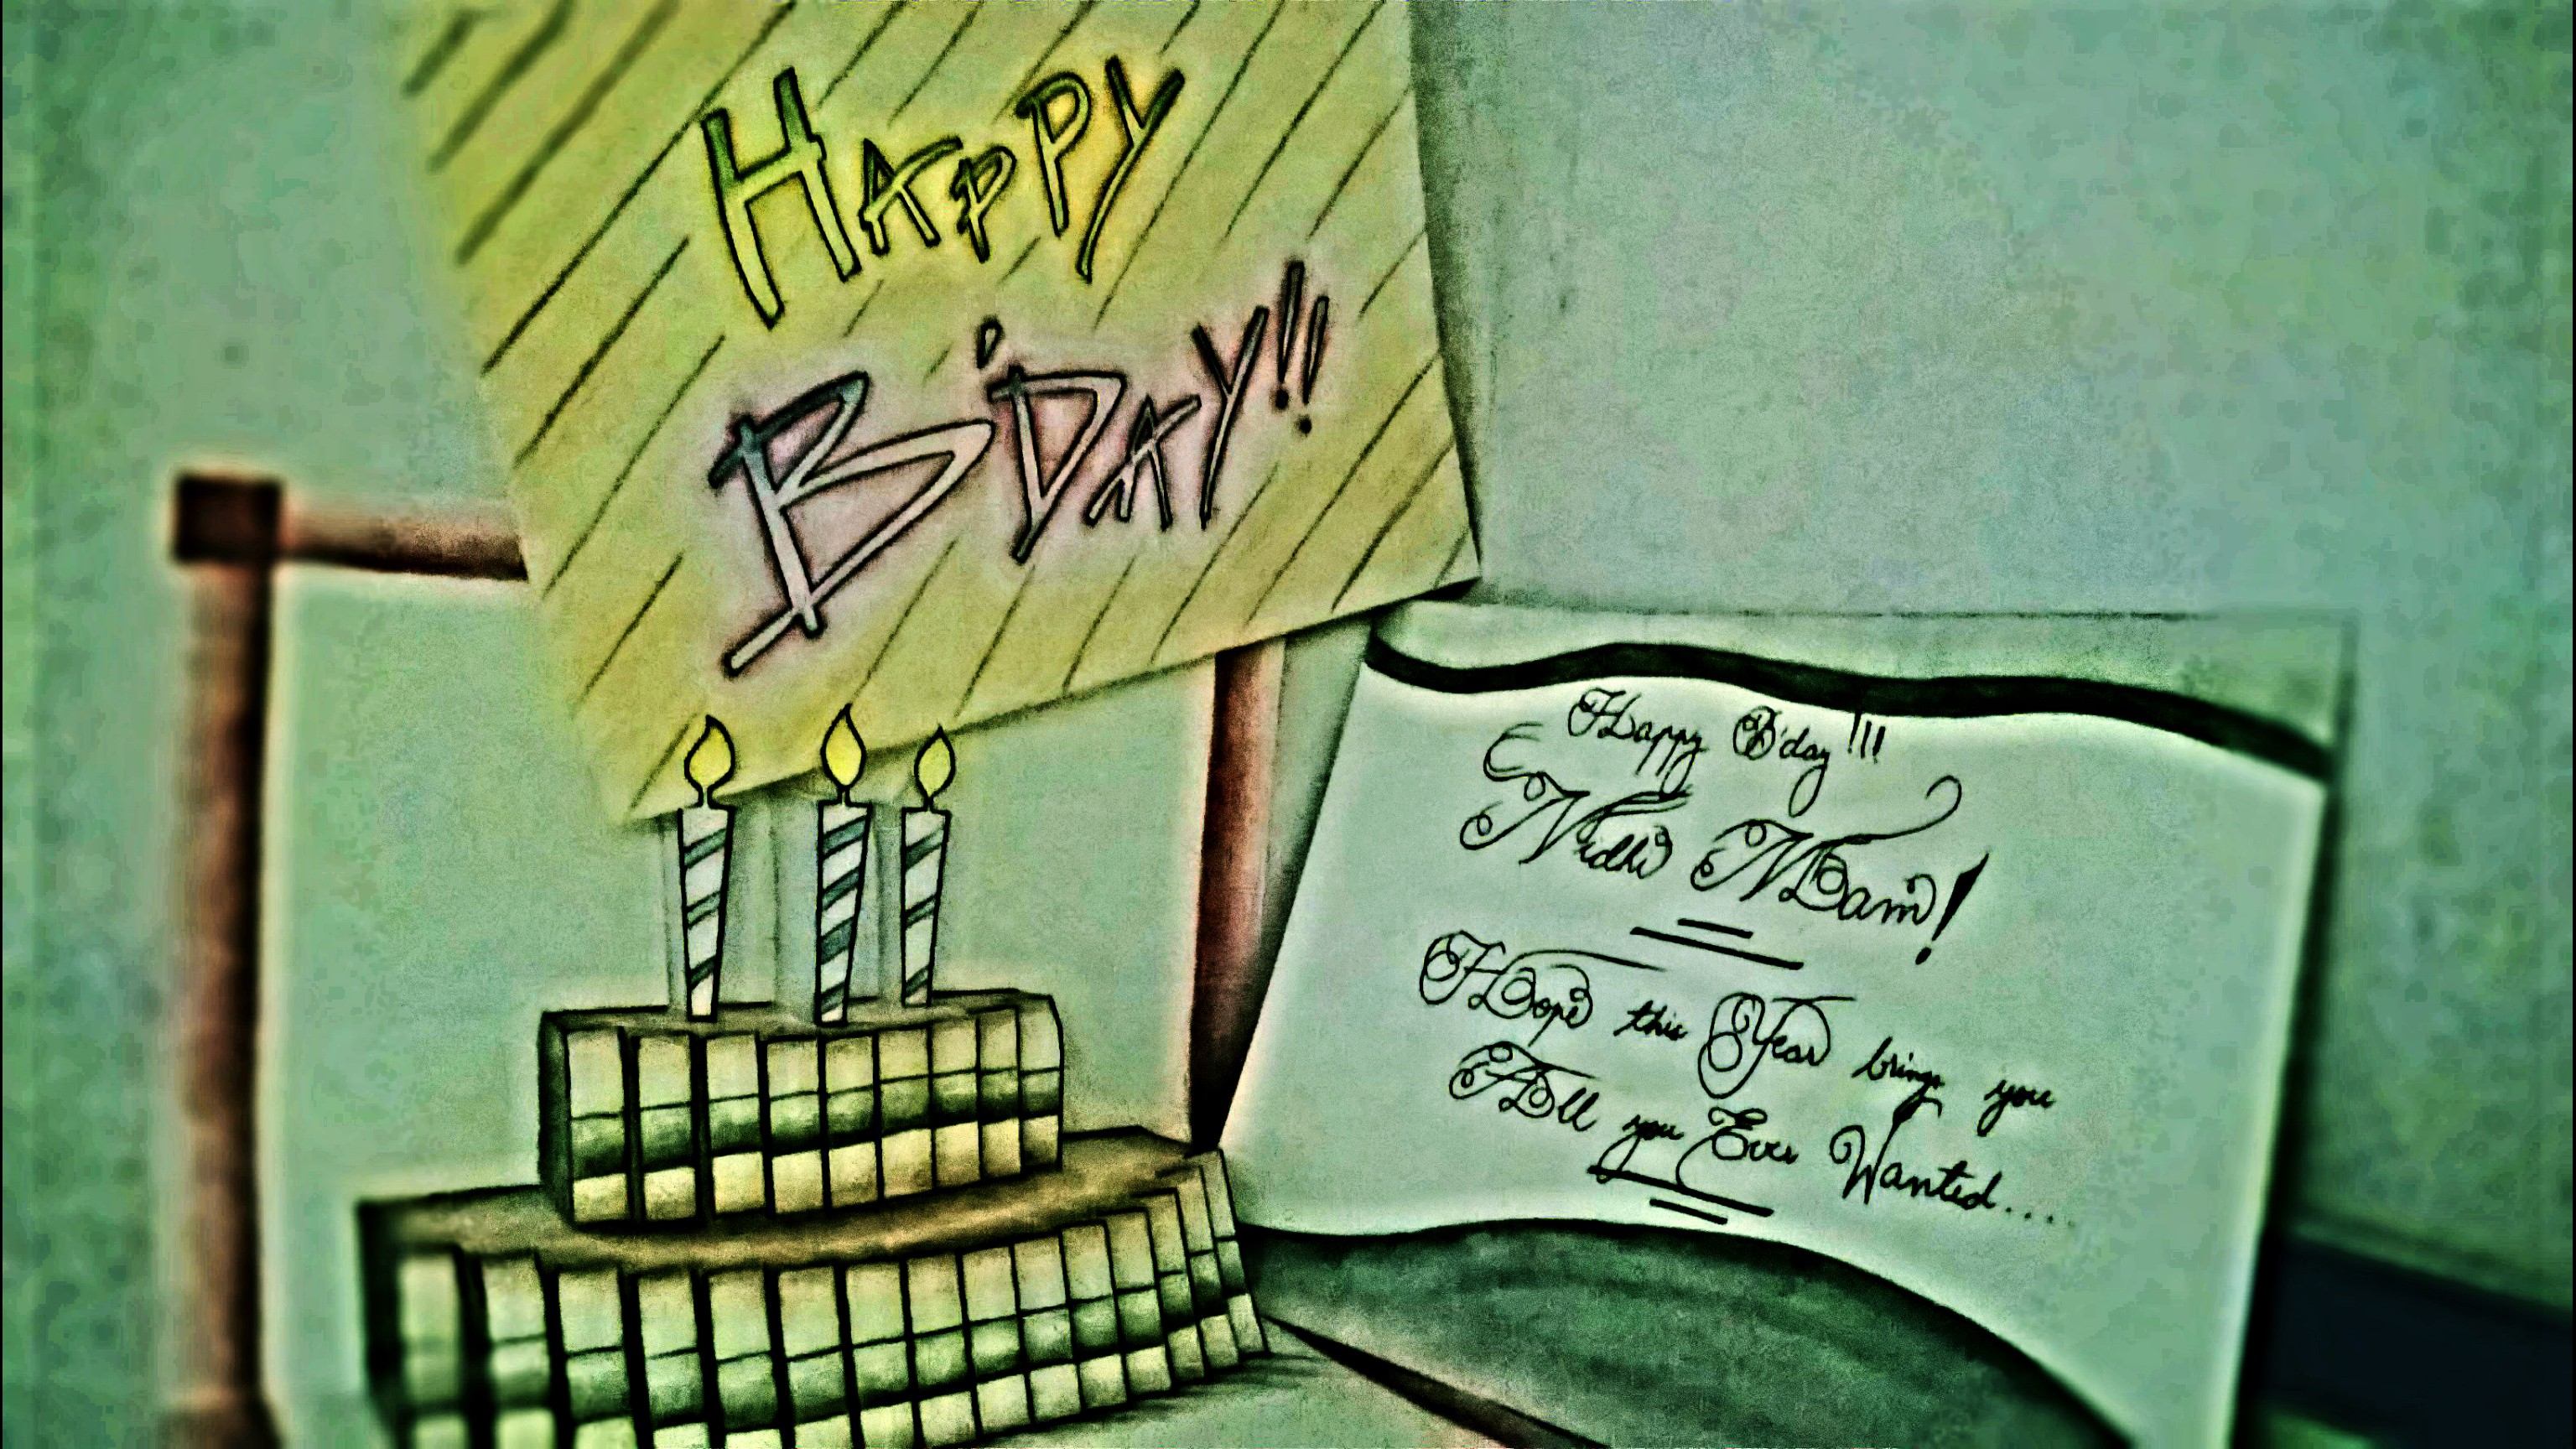 HAPPY
B'DAY!!
Happy B'day!!!
Nidhi Mam!
Hope this Year brings you
All you Ever Wanted....